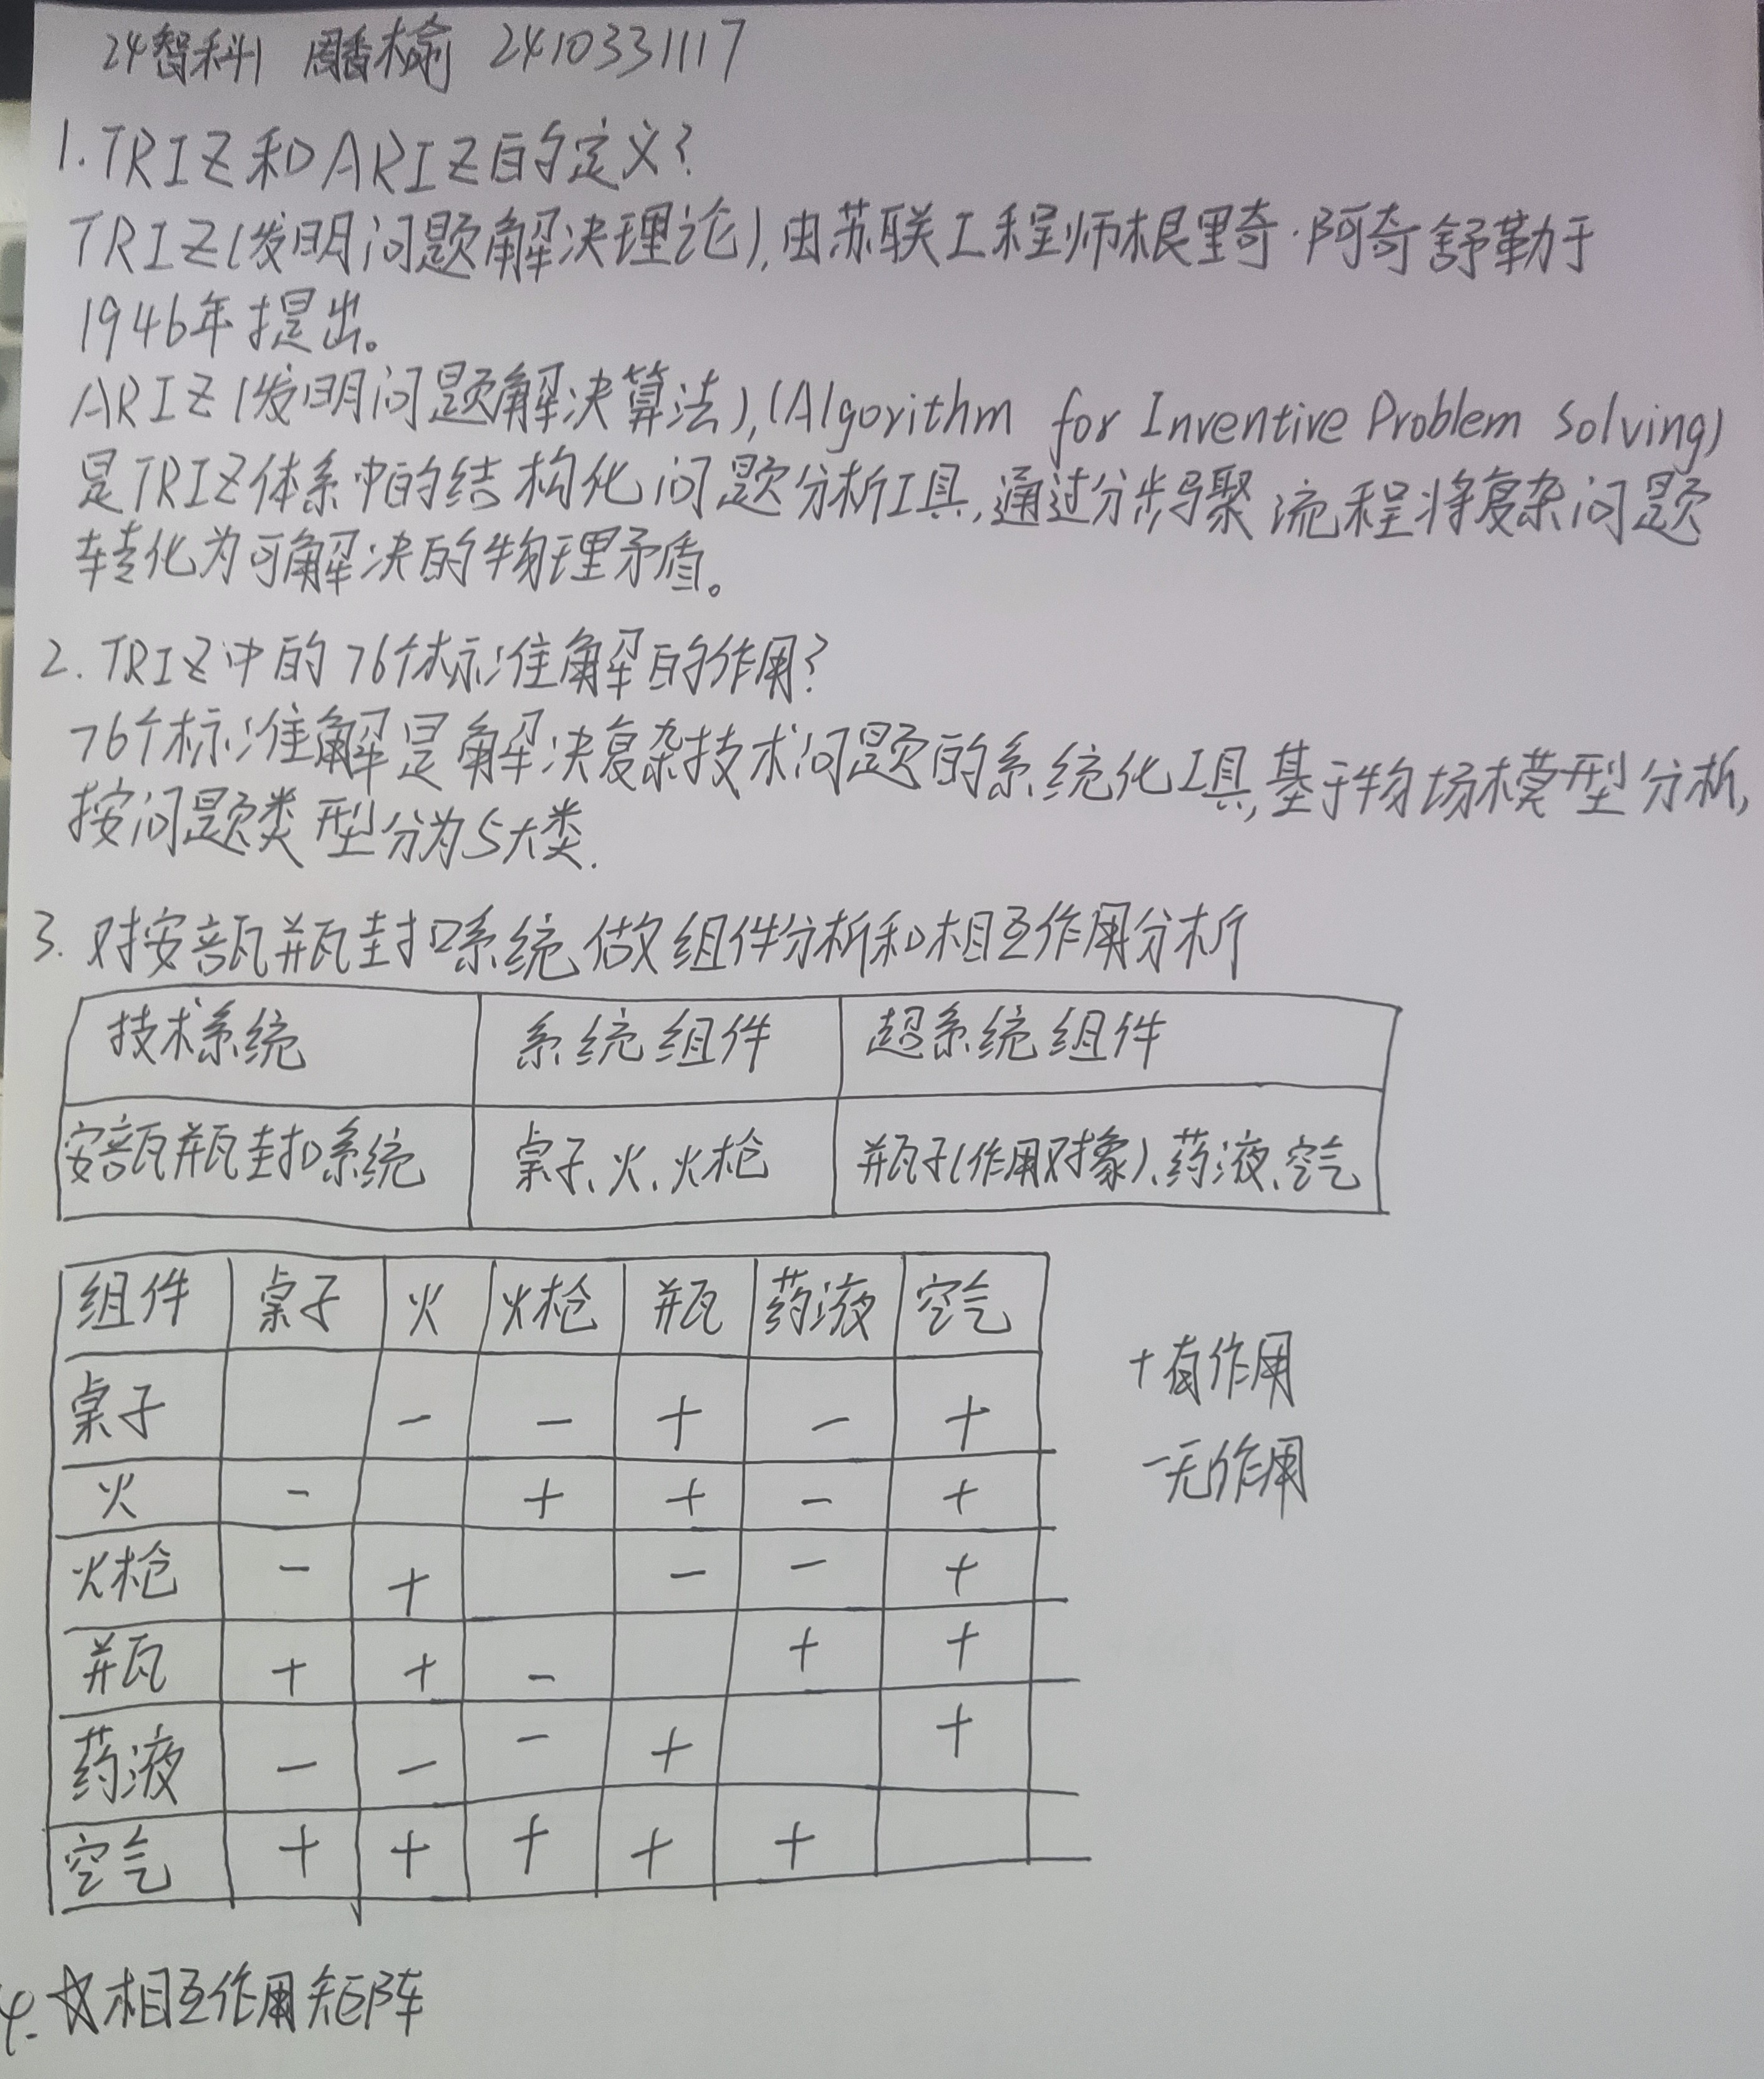 24智科1 周播榆 2410331117
1.TRIZ和ARIZ的定义?
TRIZ(发明问题解决理论),由苏联工程师根里奇·阿奇舒勒于
1946年提出。
ARIZ(发明问题解决算法),(Algorithm for Inventive Problem Solving)
是TRIZ体系中的结构化问题分析工具,通过分步骤流程将复杂问题
转化为可解决的物理矛盾。
2.TRIZ中的76个标准解的作用?
76个标准解是解决复杂技术问题的系统化工具,基于物场模型分析,
按问题类型分为5大类.
3.对安瓿瓶封口系统做组件分析和相互作用分析
技术系统 系统组件 超系统组件
安瓿瓶封口系统 桌子、火、火枪 瓶子(作用对象)、药液、空气
组件 桌子 火 火枪 瓶 药液 空气
桌子 - - + - +
火 - + + - +
火枪 - + - - +
瓶 + + - + +
药液 - - - + +
空气 + + + + +
+有作用
-无作用
4.相互作用矩阵